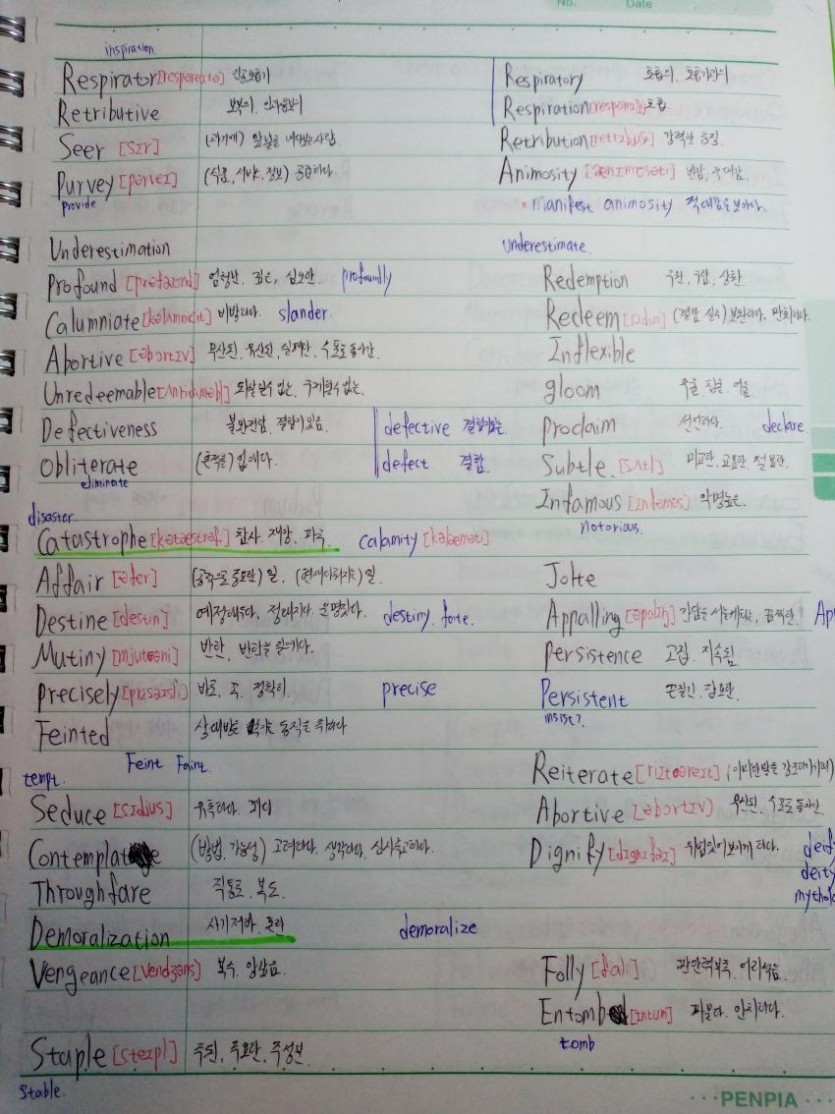 No. Date
inspiration
Respirator 인공호흡기 Respiratory 호흡의, 호흡기관의
Retributive 보복의, 인과응보의 Respiration 호흡
Seer [sɪr] (과거에) 앞날을 내다보는 사람. Retribution 강력한 응징
Purvey [pərveɪ] (식품, 서비스, 정보) 공급하다. Animosity 반감, 적대감
provide • manifest animosity 적대감을 보이다.
Underestimation underestimate.
Profound 엄청난, 깊은, 심오한 profoundly Redemption 구원, 구함, 상환
Calumniate 비방하다. slander Redeem (결함, 실수) 보완하다, 만회하다.
Abortive [əbɔrtɪv] 무산된, 유산된, 실패한, 수포로 돌아간 Inflexible
Unredeemable 되살릴 수 없는, 구제할 수 없는. gloom 우울, 침울, 어둠
Defectiveness 불완전함, 결함이 있음 defective 결함있는 Proclaim 선언하다. declare
Obliterate (흔적을) 없애다. defect 결함. Subtle [sʌtl] 미묘한, 교묘한, 절묘한.
eliminate Infamous 악명높은.
disaster notorious.
Catastrophe 참사, 재앙, 파국 calamity
Affair [əfer] 일, 일. Joke
Destine [destɪn] 예정해두다, 정해지다, 운명짓다. destiny, fate. Appalling 간담을 서늘케 하는, 끔찍한 Ap
Mutiny 반란, 반란을 일으키다. Persistence 고집, 지속됨
Precisely 바로, 꼭, 정확히 precise Persistent 끈질긴, 집요한
insist?
Feinted 상대방을 속이는 동작을 취하다
Feint Faint Reiterate
tempt.
Seduce [sɪdjus] 유혹하다, 꾀다 Abortive [əbɔrtɪv] 유산된, 수포로 돌아간
Contemplate (방법, 가능성) 고려하다, 생각하다, 심사숙고하다. Dignify 위엄있어 보이게 하다. deif
Throughfare 직통로, 복도. deity
mythol
Demoralization 사기저하, 혼란 demoralize
Vengeance 복수, 앙갚음 Folly 판단력부족, 어리석음
Entomb 파묻다, 안치하다.
Staple [steɪpl] 주된, 주요한, 주성분 tomb
Stable.
PENPIA